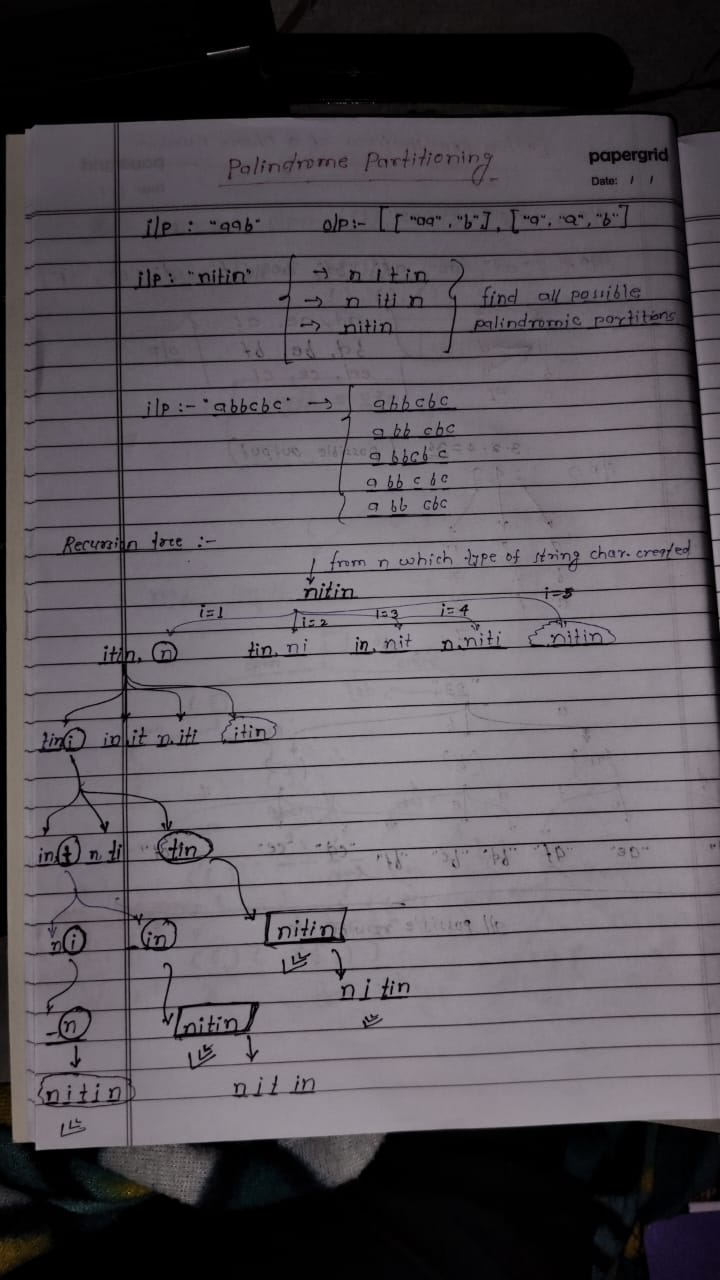 Palindrome Partitioning
papergrid
Date: / /
i/p : "aab" o/p:- [ [ "aa", "b" ], [ "a", "a", "b" ]
i/p: "nitin" → n i t i n
→ n iti n
→ nitin
find all possible
palindromic partitions
i/p :- "abbcbc" → a b b c b c
a bb cbc
a bbcb c
a bb c bc
a bb cbc
Recursion tree :-
↓ from n which type of string char. created
nitin
i=1 i=2 i=3 i=4 i=5
itin, n tin, ni in, nit n, niti nitin
tin i in, it n, iti itin
in, t n, ti tin
n i in nitin
n i tin
- n nitin
n i t i n n i t in